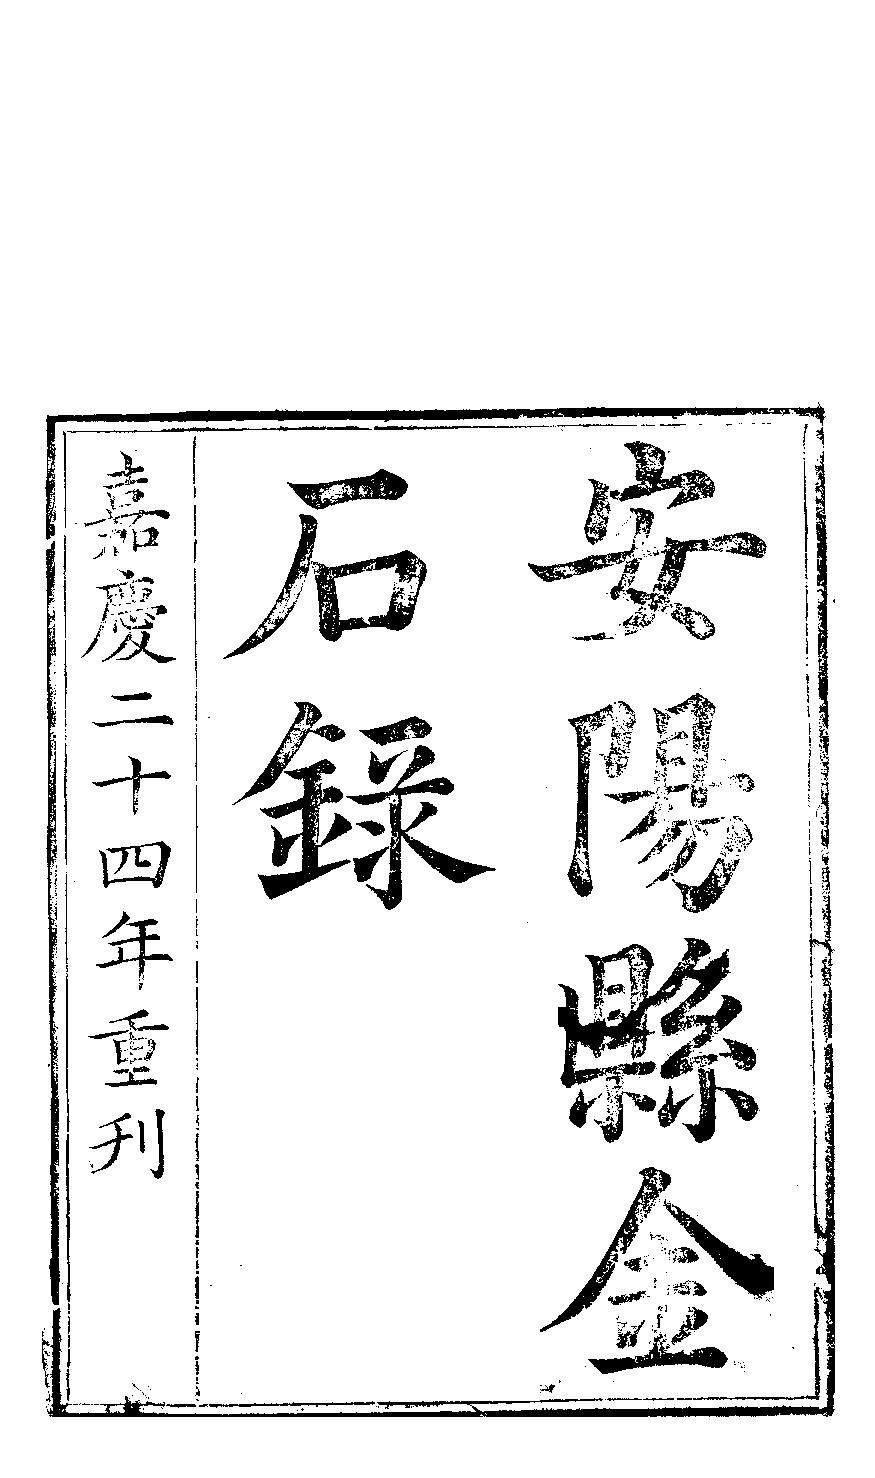 安陽縣金
石錄
嘉慶二十四年重刋